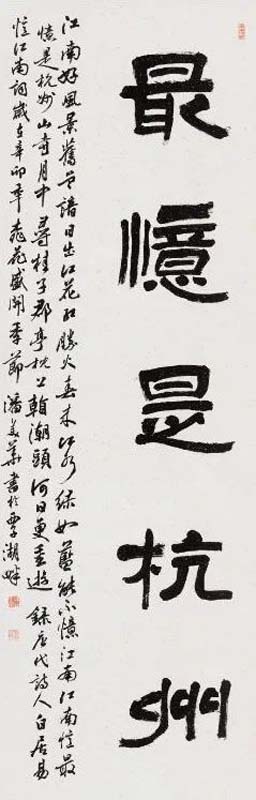 最憶是杭州
江南好風景舊曾諳日出江花紅勝火春來江水綠如藍能不憶江南江南憶最
憶是杭州山寺月中尋桂子郡亭枕上看潮頭何日更重遊錄唐代詩人白居易
憶江南詞歲在辛卯年桃花盛開季節潘華書於西子湖畔